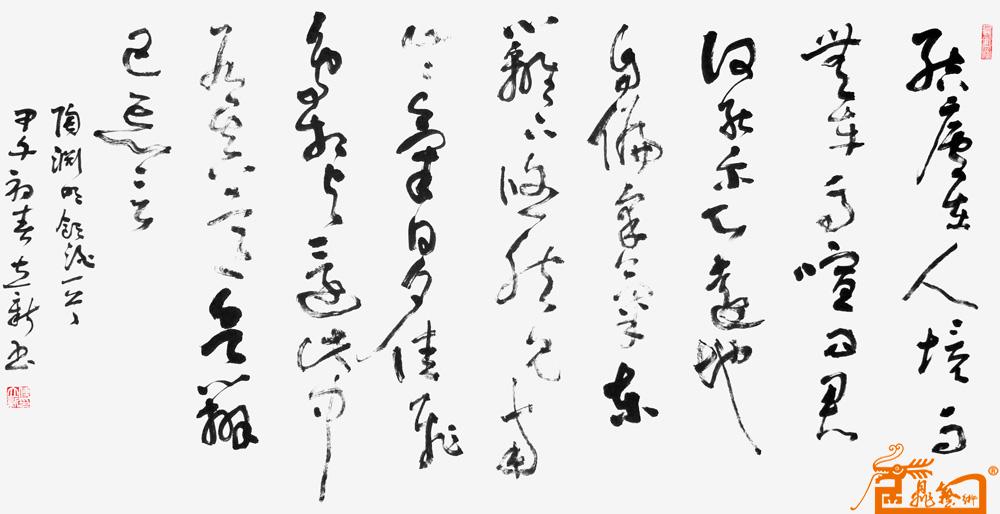 結廬在人境而
無車馬喧問君
何能尔心遠地
自偏采菊東
籬下悠然見南
山〻氣日夕佳飛
鳥相與還此中
有真意欲辨
已忘言
陶渊明飲酒一首
甲午初春志新书